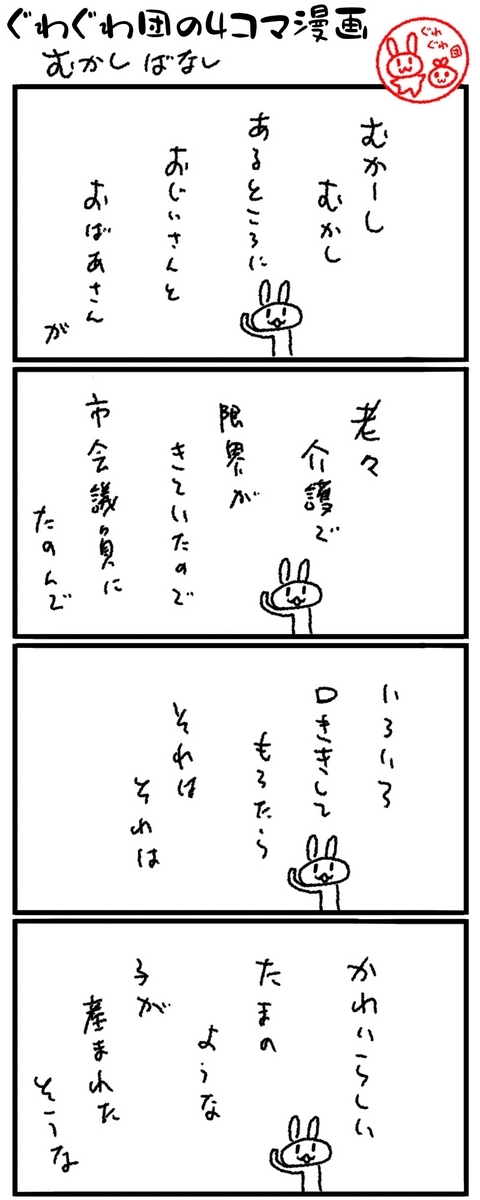 ぐわぐわ団の4コマ漫画
むかしばなし
ぐわ
ぐわ
団
むかーし
むかし
あるところに
おじいさんと
おばあさん
が
老々
介護で
限界が
きていたので
市会議員に
たのんで
いろいろ
口ききして
もろたら
それは
それは
かわいらしい
たまの
ような
子が
産まれた
そうな